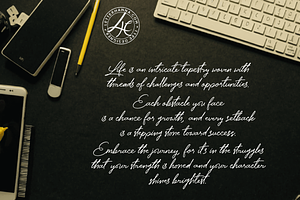 Life is an intricate tapestry woven with
threads of challenges and opportunities.
Each obstacle you face
is a chance for growth, and every setback
is a stepping stone toward success.
Embrace the journey, for it's in the struggles
that your strength is honed and your character
shines brightest.